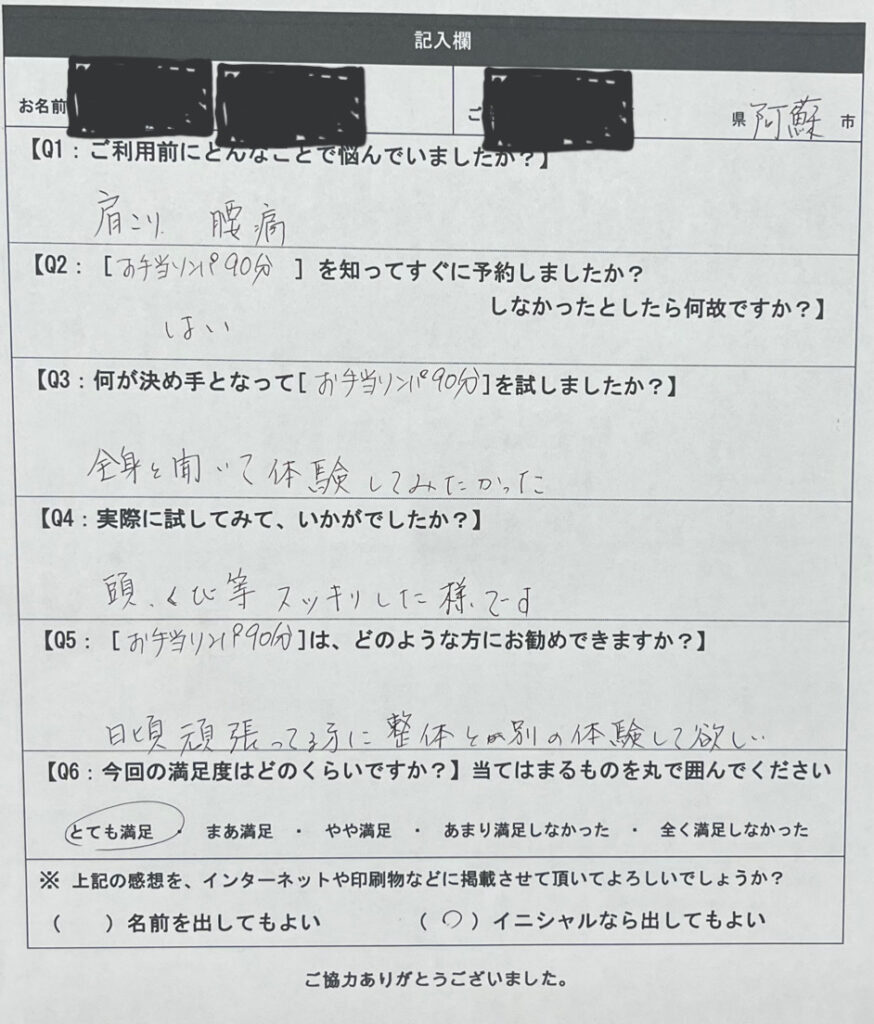 記入欄
お名前 ご 県 阿蘇 市
【Q1：ご利用前にどんなことで悩んでいましたか？】
肩こり 腰痛
【Q2：[お手当リンパ90分 ]を知ってすぐに予約しましたか？
しなかったとしたら何故ですか？】
はい
【Q3：何が決め手となって[お手当リンパ90分]を試しましたか？】
全身と聞いて体験してみたかった
【Q4：実際に試してみて、いかがでしたか？】
頭、くび等スッキリした様です
【Q5：[お手当リンパ90分]は、どのような方にお勧めできますか？】
日頃頑張ってる方に整体とか別の体験して欲しい
【Q6：今回の満足度はどのくらいですか？】当てはまるものを丸で囲んでください
とても満足 ・ まあ満足 ・ やや満足 ・ あまり満足しなかった ・ 全く満足しなかった
※ 上記の感想を、インターネットや印刷物などに掲載させて頂いてよろしいでしょうか？
（ ）名前を出してもよい （○）イニシャルなら出してもよい
ご協力ありがとうございました。